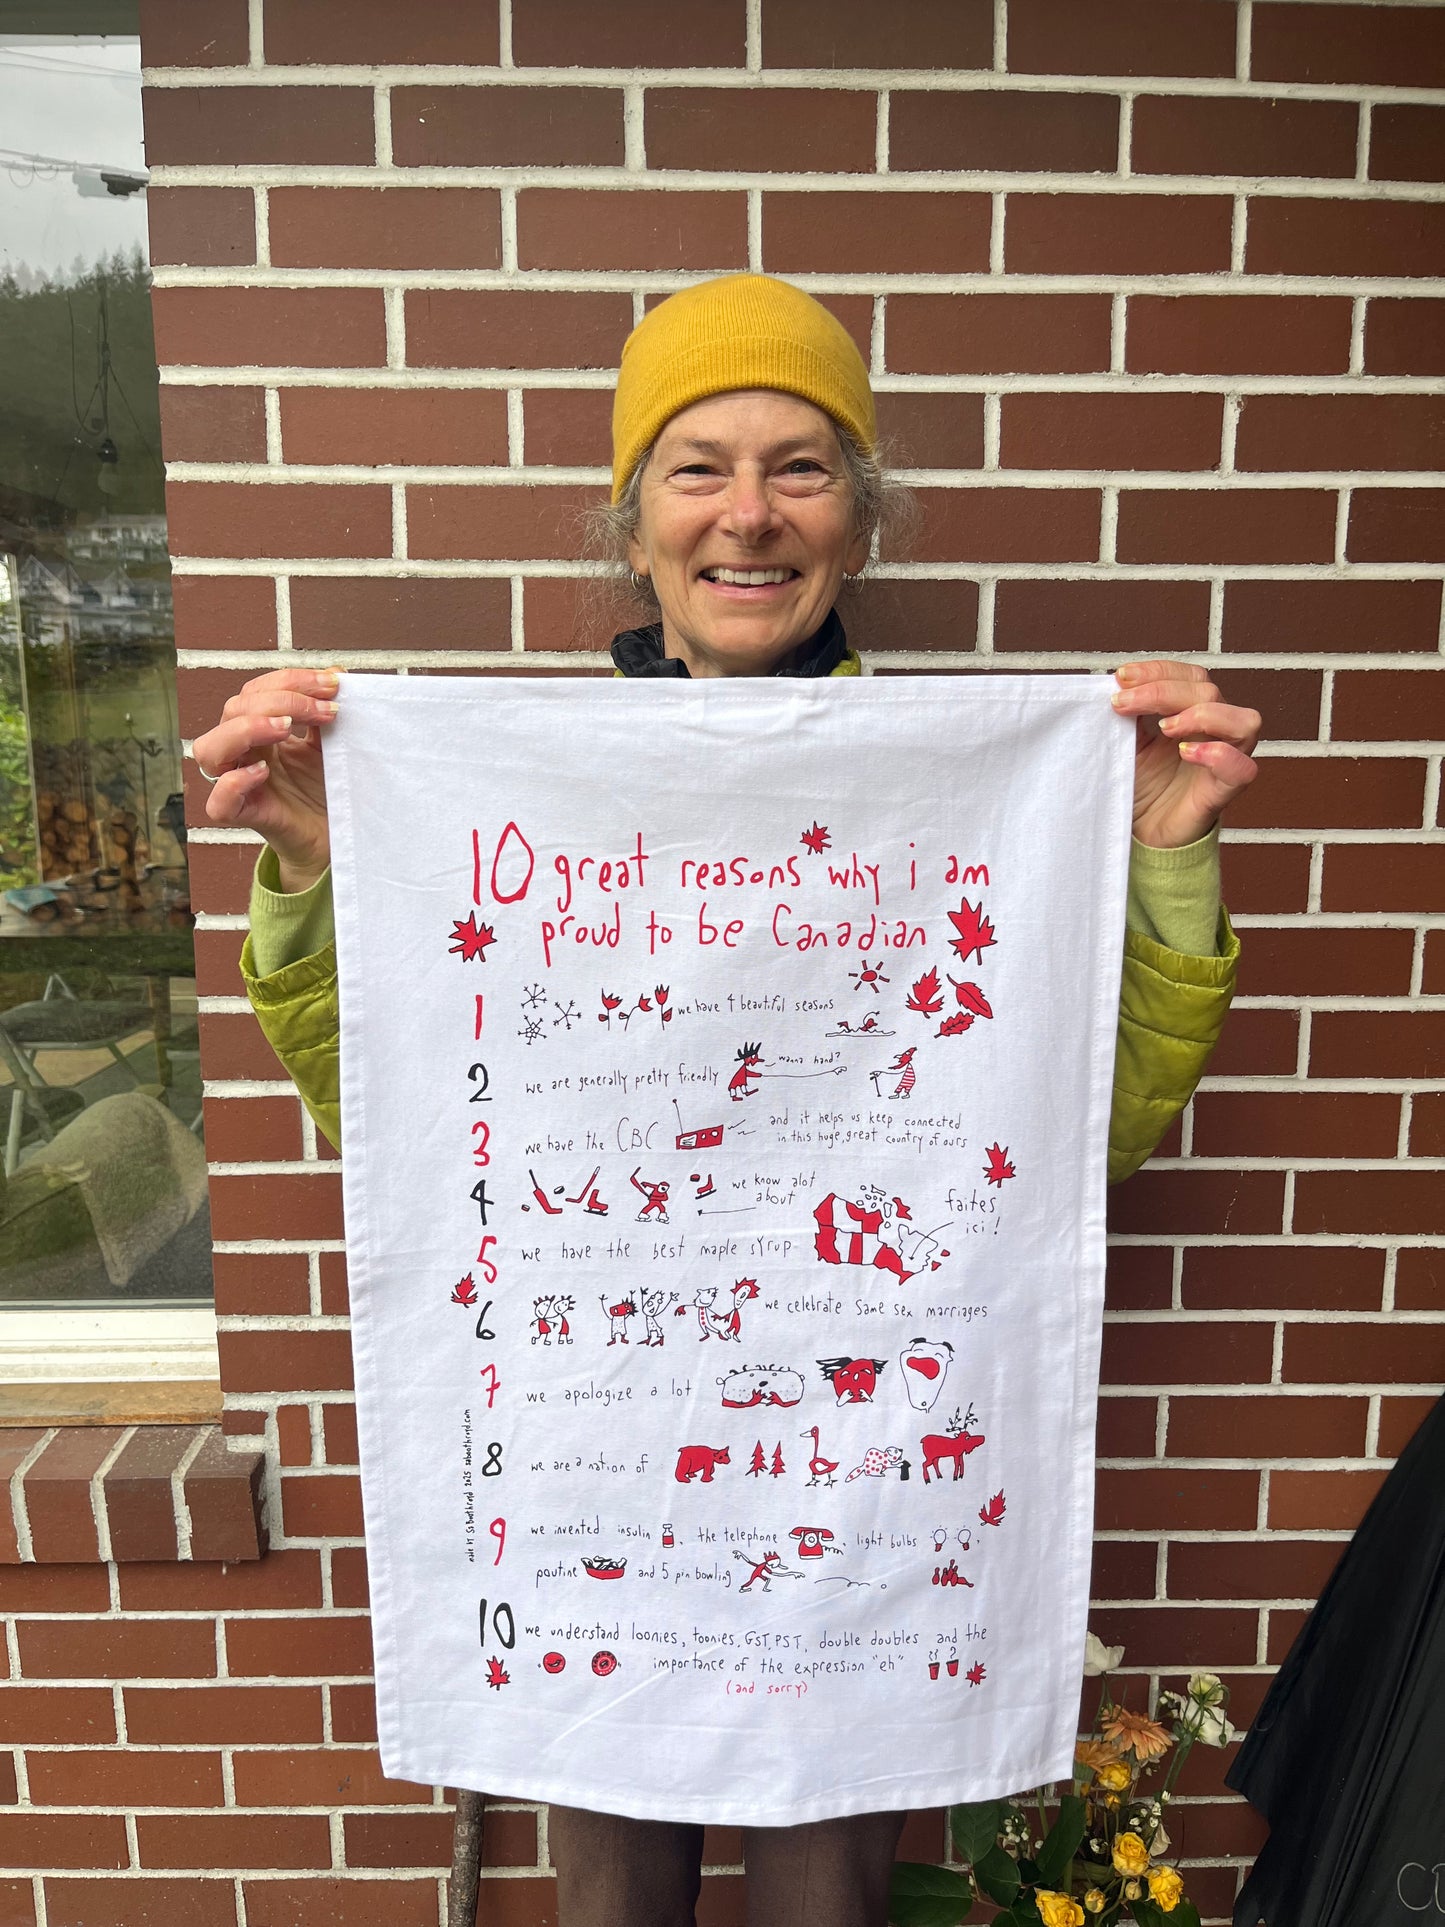 10 great reasons why i am
proud to be Canadian
1 we have 4 beautiful seasons
2 we are generally pretty friendly
wanna hand?
3 we have the CBC
and it helps us keep connected
in this huge, great country of ours
4 we know alot
about
5 we have the best maple syrup
faites
ici!
6 we celebrate same sex marriages
7 we apologize a lot
8 we are a nation of
9 we invented insulin , the telephone , light bulbs ,
poutine and 5 pin bowling
10 we understand loonies, toonies, GST, PST, double doubles and the
importance of the expression "eh"
(and sorry)